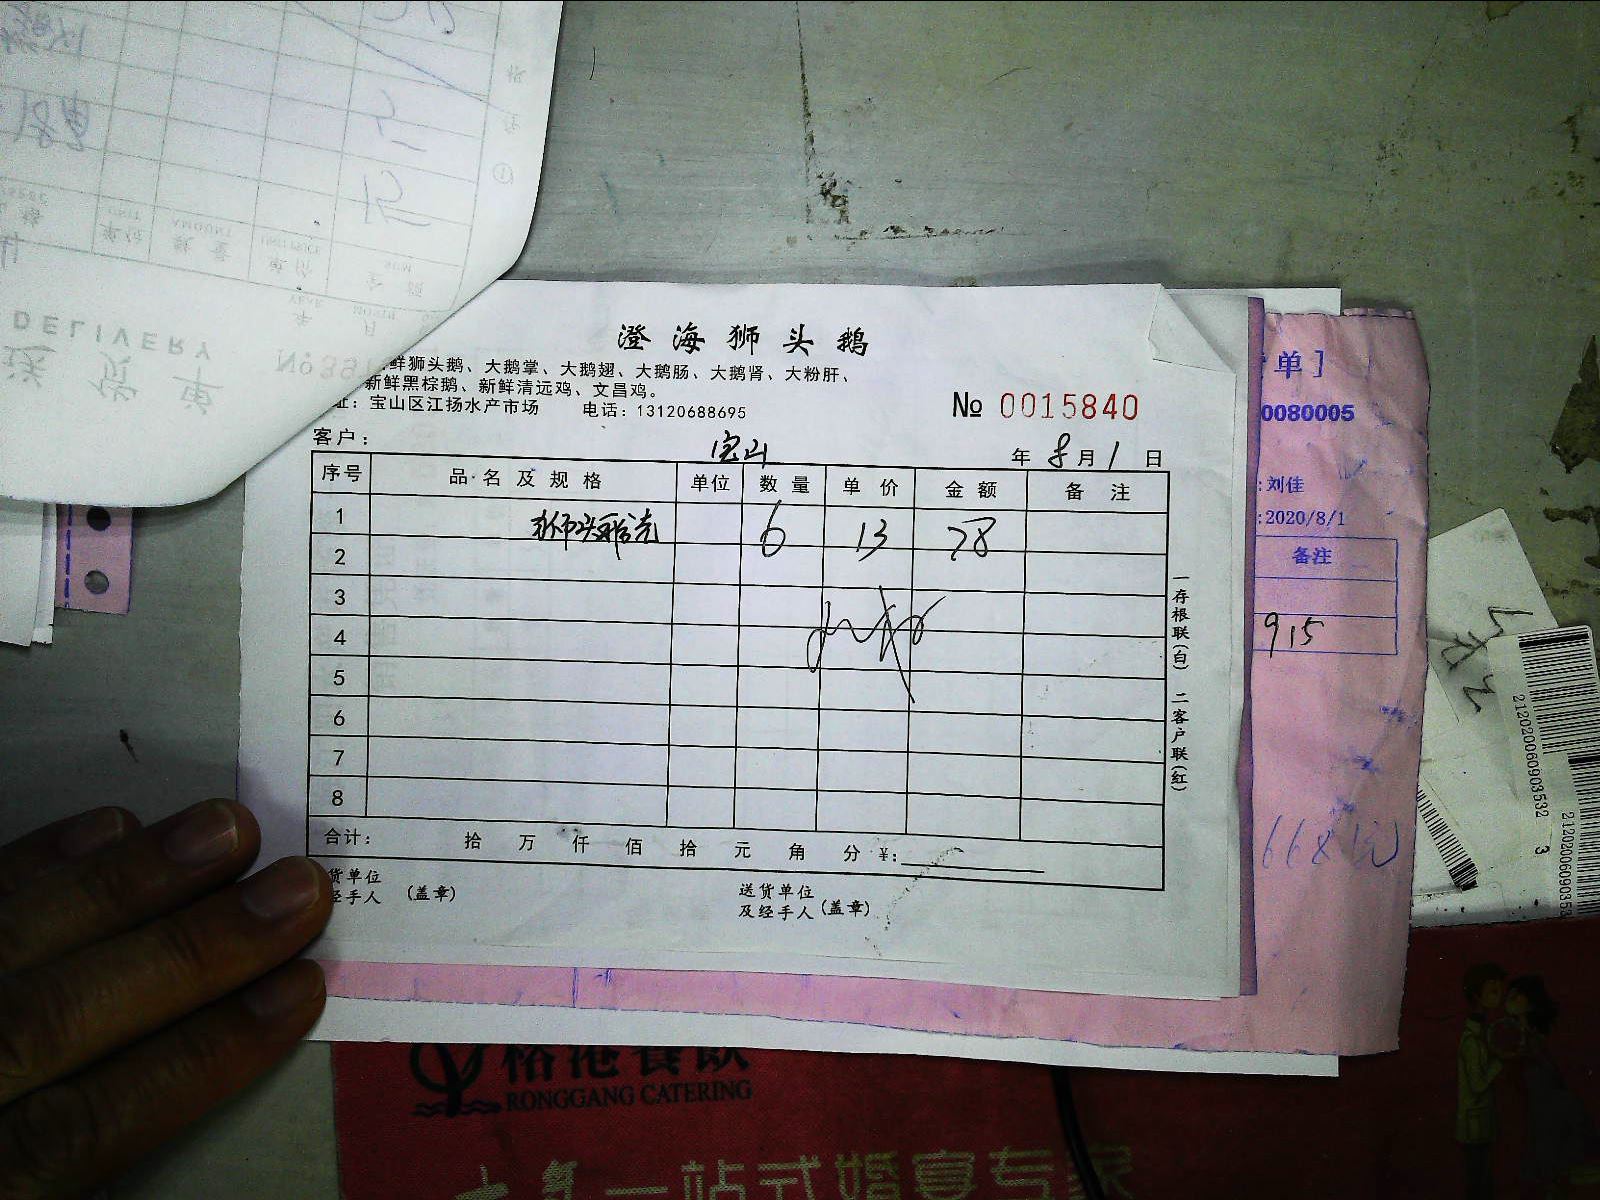 DELIVERY
送 货 单
澄海狮头鹅
鲜狮头鹅、大鹅掌、大鹅翅、大鹅肠、大鹅肾、大粉肝、
新鲜黑棕鹅、新鲜清远鸡、文昌鸡。
址：宝山区江扬水产市场 电话：13120688695
№ 0015840
客户： 宝山 年 8 月 1 日
序号 品名及规格 单位 数量 单价 金额 备注
1 狮头鹅壳 6 13 78
2
3
4
5
6
7
8
合计： 拾 万 仟 佰 拾 元 角 分 ¥：
货单位
经手人 (盖章)
送货单位
及经手人 (盖章)
一存根联(白) 二客户联(红)
单]
0080005
:刘佳
:2020/8/1
备注
915
668元
212020060903532 3
裕港餐饮
RONGGANG CATERING
一站式婚宴专家